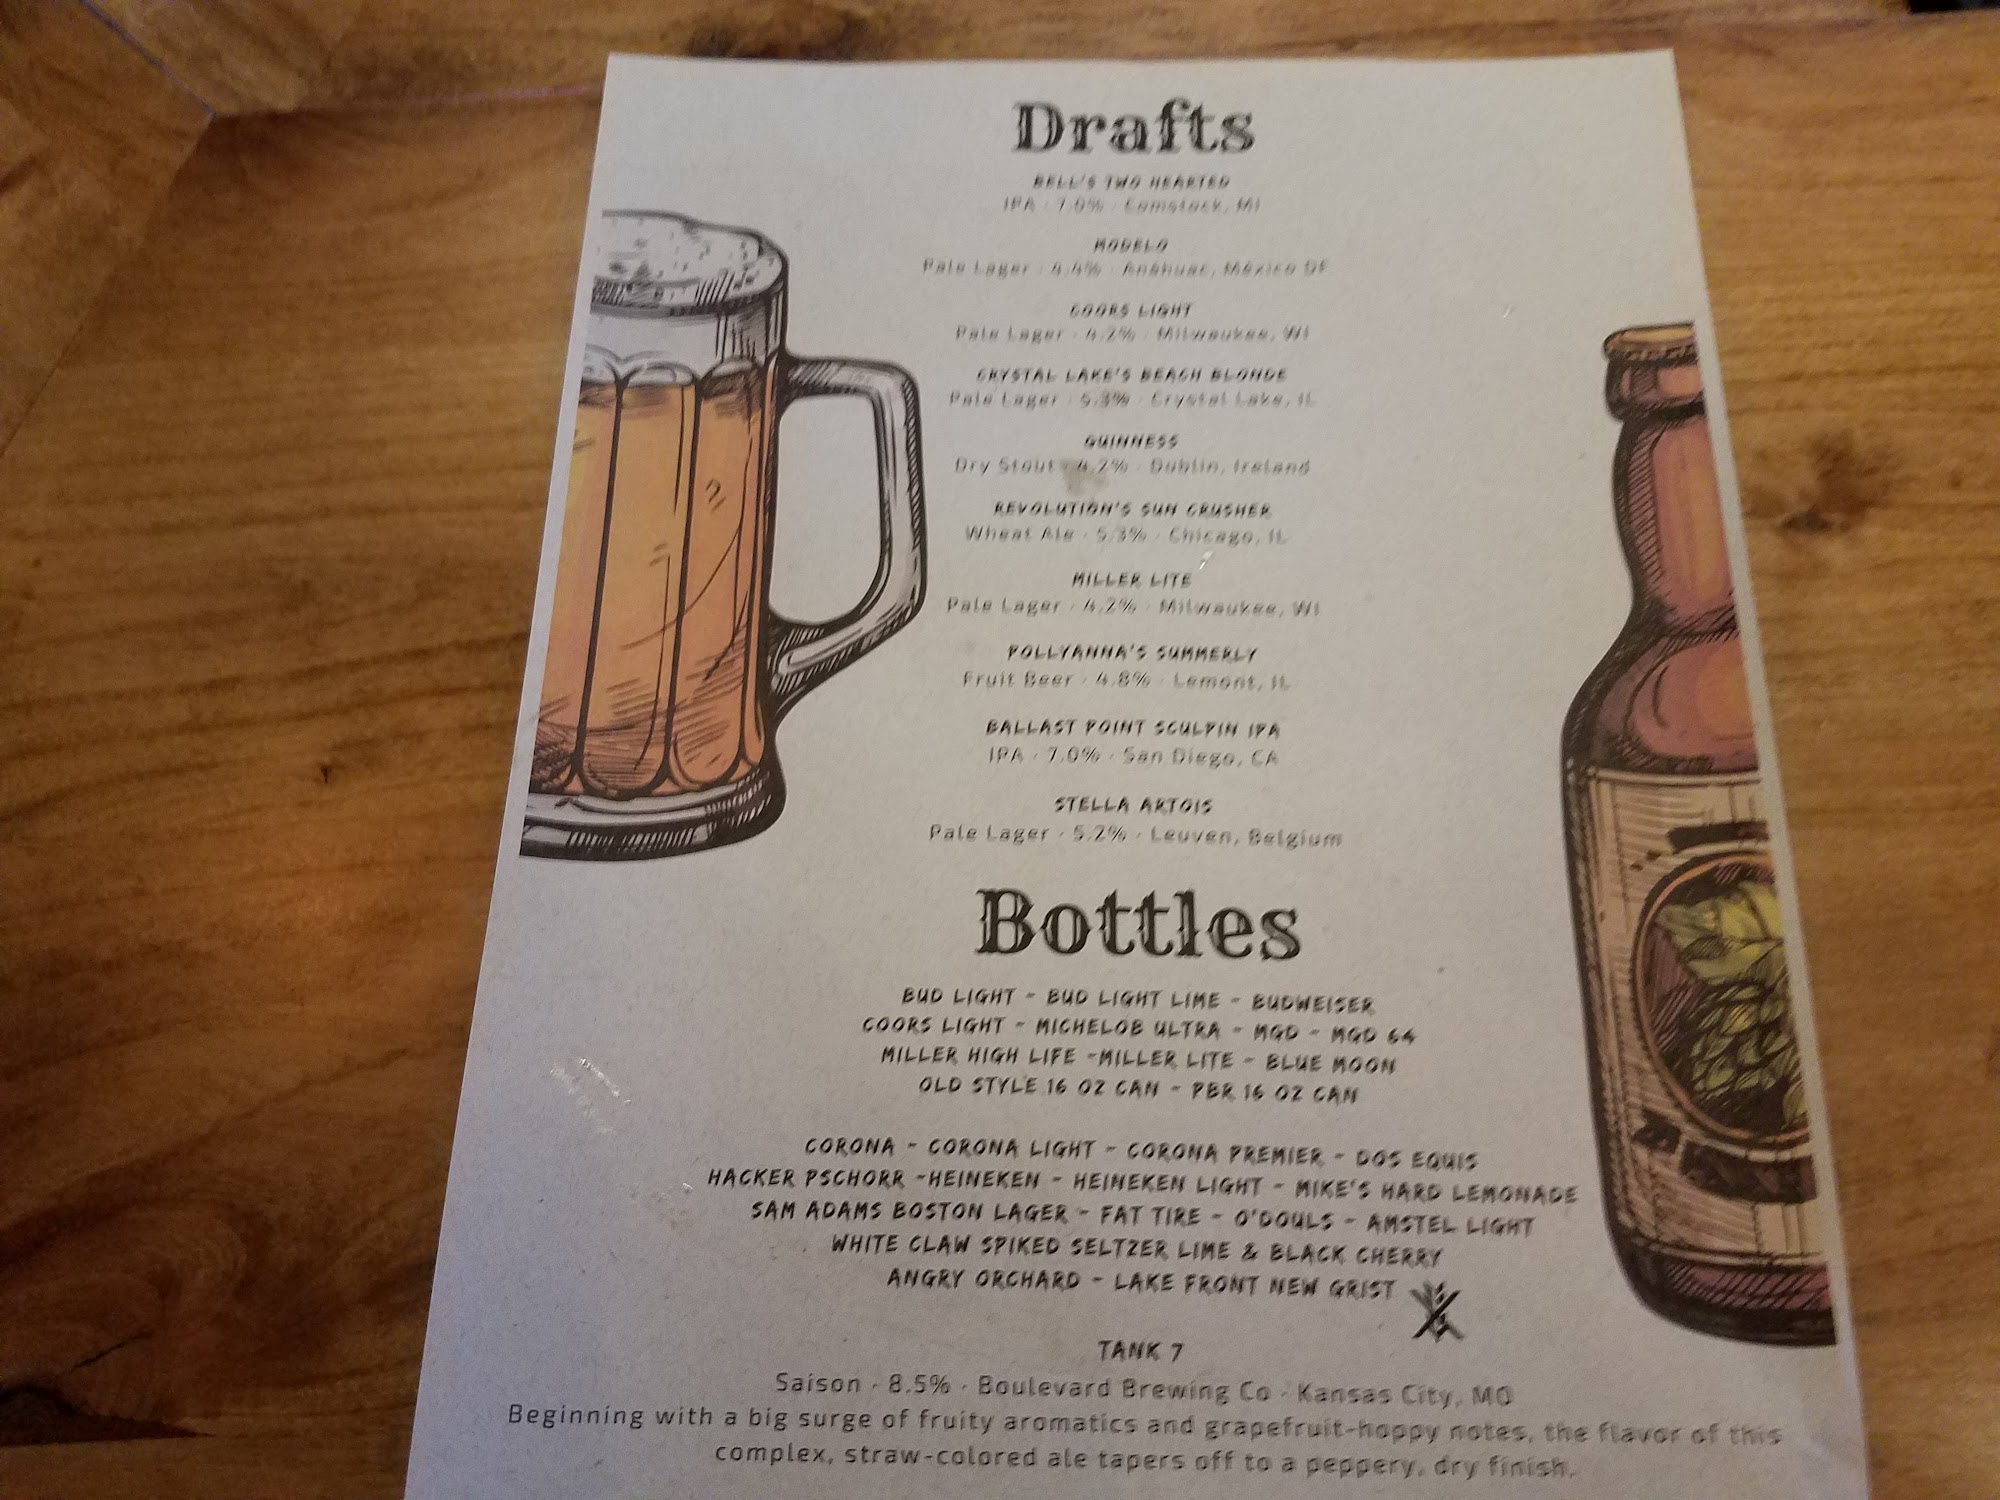 Drafts
BELL'S TWO HEARTED
IPA · 7.0% · Comstock, MI
MODELO
Pale Lager · 4.4% · Anáhuac, México DF
COORS LIGHT
Pale Lager · 4.2% · Milwaukee, WI
CRYSTAL LAKE'S BEACH BLONDE
Pale Lager · 5.3% · Crystal Lake, IL
GUINNESS
Dry Stout · 4.2% · Dublin, Ireland
REVOLUTION'S SUN CRUSHER
Wheat Ale · 5.3% · Chicago, IL
MILLER LITE
Pale Lager · 4.2% · Milwaukee, WI
POLLYANNA'S SUMMERLY
Fruit Beer · 4.8% · Lemont, IL
BALLAST POINT SCULPIN IPA
IPA · 7.0% · San Diego, CA
STELLA ARTOIS
Pale Lager · 5.2% · Leuven, Belgium
Bottles
BUD LIGHT - BUD LIGHT LIME - BUDWEISER
COORS LIGHT - MICHELOB ULTRA - MGD - MGD 64
MILLER HIGH LIFE -MILLER LITE - BLUE MOON
OLD STYLE 16 OZ CAN - PBR 16 OZ CAN
CORONA - CORONA LIGHT - CORONA PREMIER - DOS EQUIS
HACKER PSCHORR -HEINEKEN - HEINEKEN LIGHT - MIKE'S HARD LEMONADE
SAM ADAMS BOSTON LAGER - FAT TIRE - O'DOULS - AMSTEL LIGHT
WHITE CLAW SPIKED SELTZER LIME & BLACK CHERRY
ANGRY ORCHARD - LAKE FRONT NEW GRIST
TANK 7
Saison · 8.5% · Boulevard Brewing Co · Kansas City, MO
Beginning with a big surge of fruity aromatics and grapefruit-hoppy notes, the flavor of this
complex, straw-colored ale tapers off to a peppery, dry finish.